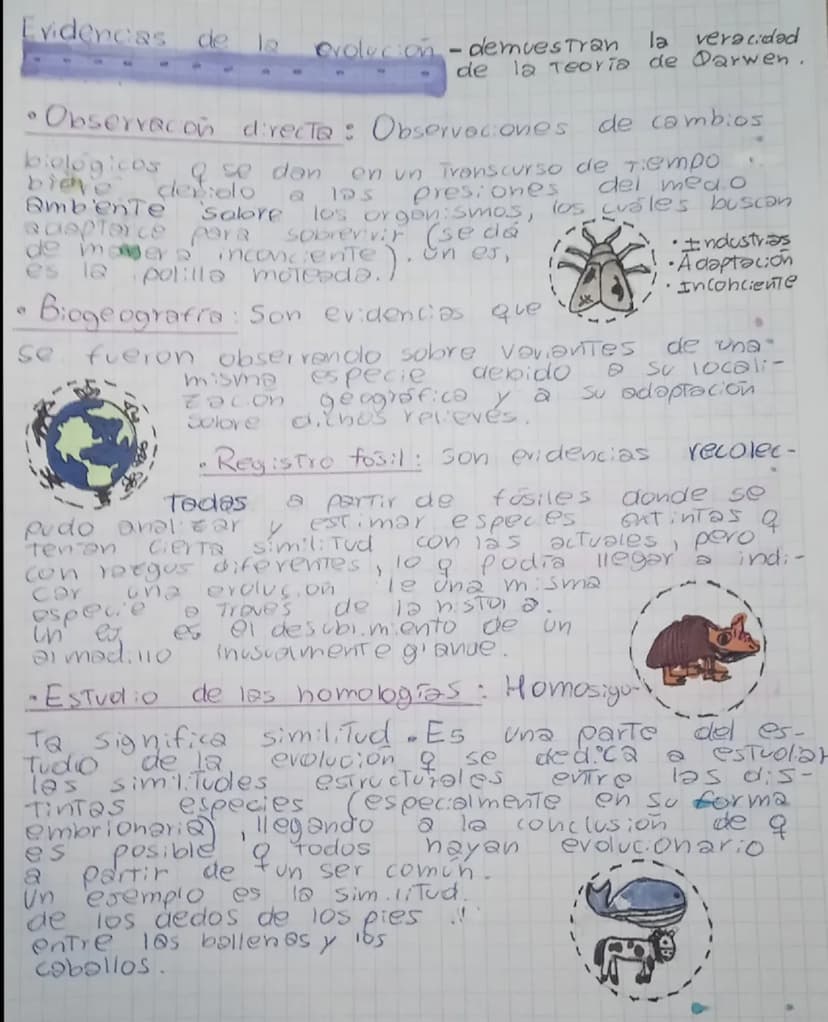 Evidencias de la evolución - demuestran la veracidad
de la Teoría de Darwen.
• Observacón directa: Observaciones de cambios
biológicos q se dan en un Transcurso de Tiempo
breve debido a las presiones del medio
ambiente sobre los organismos, los cuáles buscan
adaptarce para sobrevivir (se dá
de manera inconciente). Un ej,
es la polilla moteada.)
• Industrias
• Adaptación
• Inconciente
• Biogeografía: Son evidencias que
se fueron observando sobre variantes de una
misma especie debido a su locali-
zación geográfica y a su adaptación
sobre dichos relieves.
• Registro fosil: Son evidencias recolec-
Tadas a partir de fósiles donde se
pudo analizar y estimar especies extintas q
tenían cierta similitud con las actuales, pero
con rasgos diferentes, lo q podía llegar a indi-
car una evolución de una misma
especie a Traves de la historia.
Un ej es el descubrimiento de un
armadillo inusuamente grande.
• Estudio de las homologías: Homosigo-
Ta significa similitud. Es una parte del es-
tudio de la evolución q se dedica a estudiar
las similitudes estructurales entre las dis-
tintas especies (especialmente en su forma
embrionaria), llegando a la conclusión de q
es posible q todos hayan evolucionario
a partir de un ser común.
Un ejemplo es la similitud
de los dedos de los pies
entre las ballenas y los
caballos.